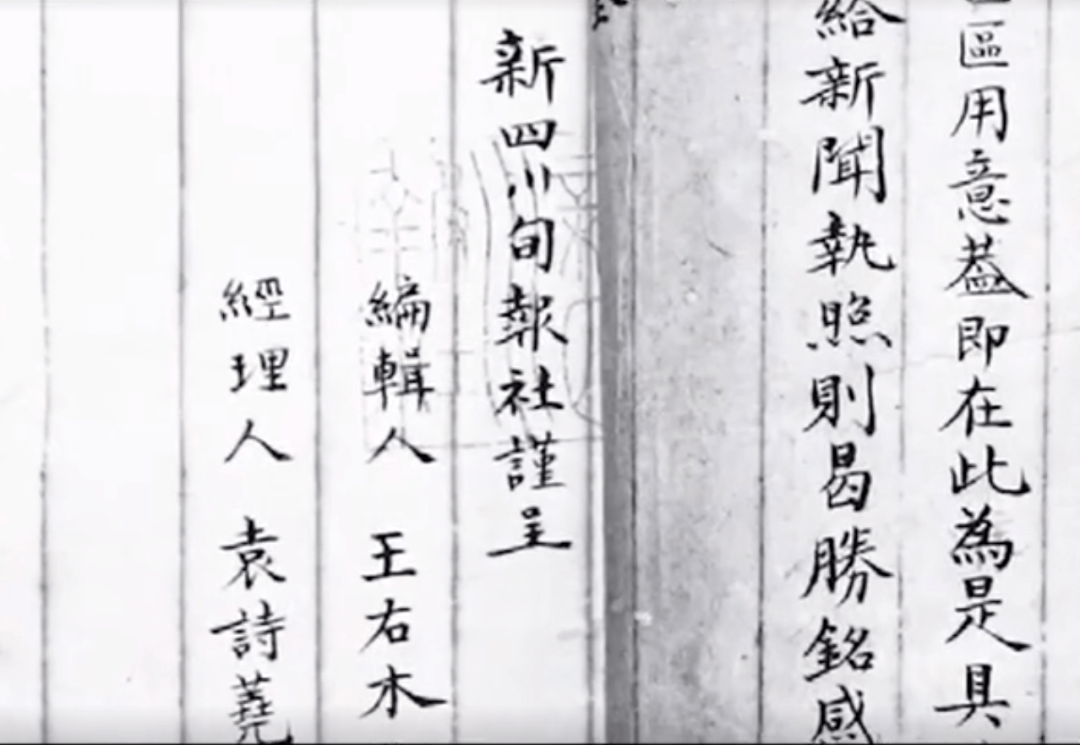 區用意蓋即在此為是具
給新聞執照則曷勝銘感
新四川旬報社謹呈
編輯人 王右木
經理人 袁詩蕘